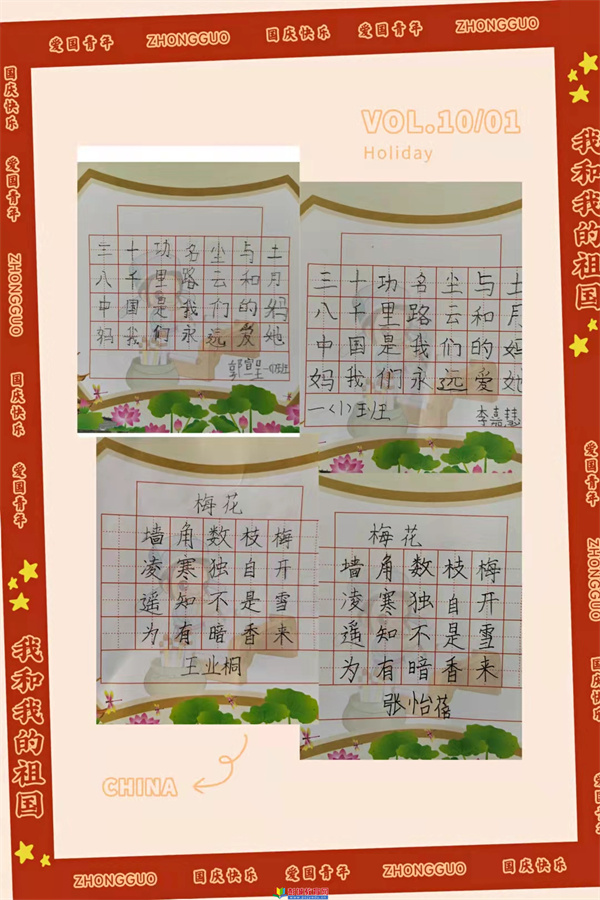 爱国青年 ZHONGGUO 国庆快乐 爱国青年 ZHONGGUO
国庆快乐
爱国青年
ZHONGGUO
国庆快乐
爱国青年
我和我的祖国
VOL.10/01
Holiday
三十功名尘与土
八千里路云和月
中国是我们的妈
妈我们永远爱她
一(1)班
三十功名尘与土
八千里路云和月
中国是我们的妈
妈我们永远爱她
一〈1〉班
李嘉慧
梅花
墙角数枝梅
凌寒独自开
遥知不是雪
为有暗香来
王业桐
梅花
墙角数枝梅
凌寒独自开
遥知不是雪
为有暗香来
张怡蓓
CHINA
我和我的祖国
爱国青年
ZHONGGUO
国庆快乐
爱国青年
ZHONGGUO
ZHONGGUO 国庆快乐 爱国青年 ZHONGGUO 国庆快乐